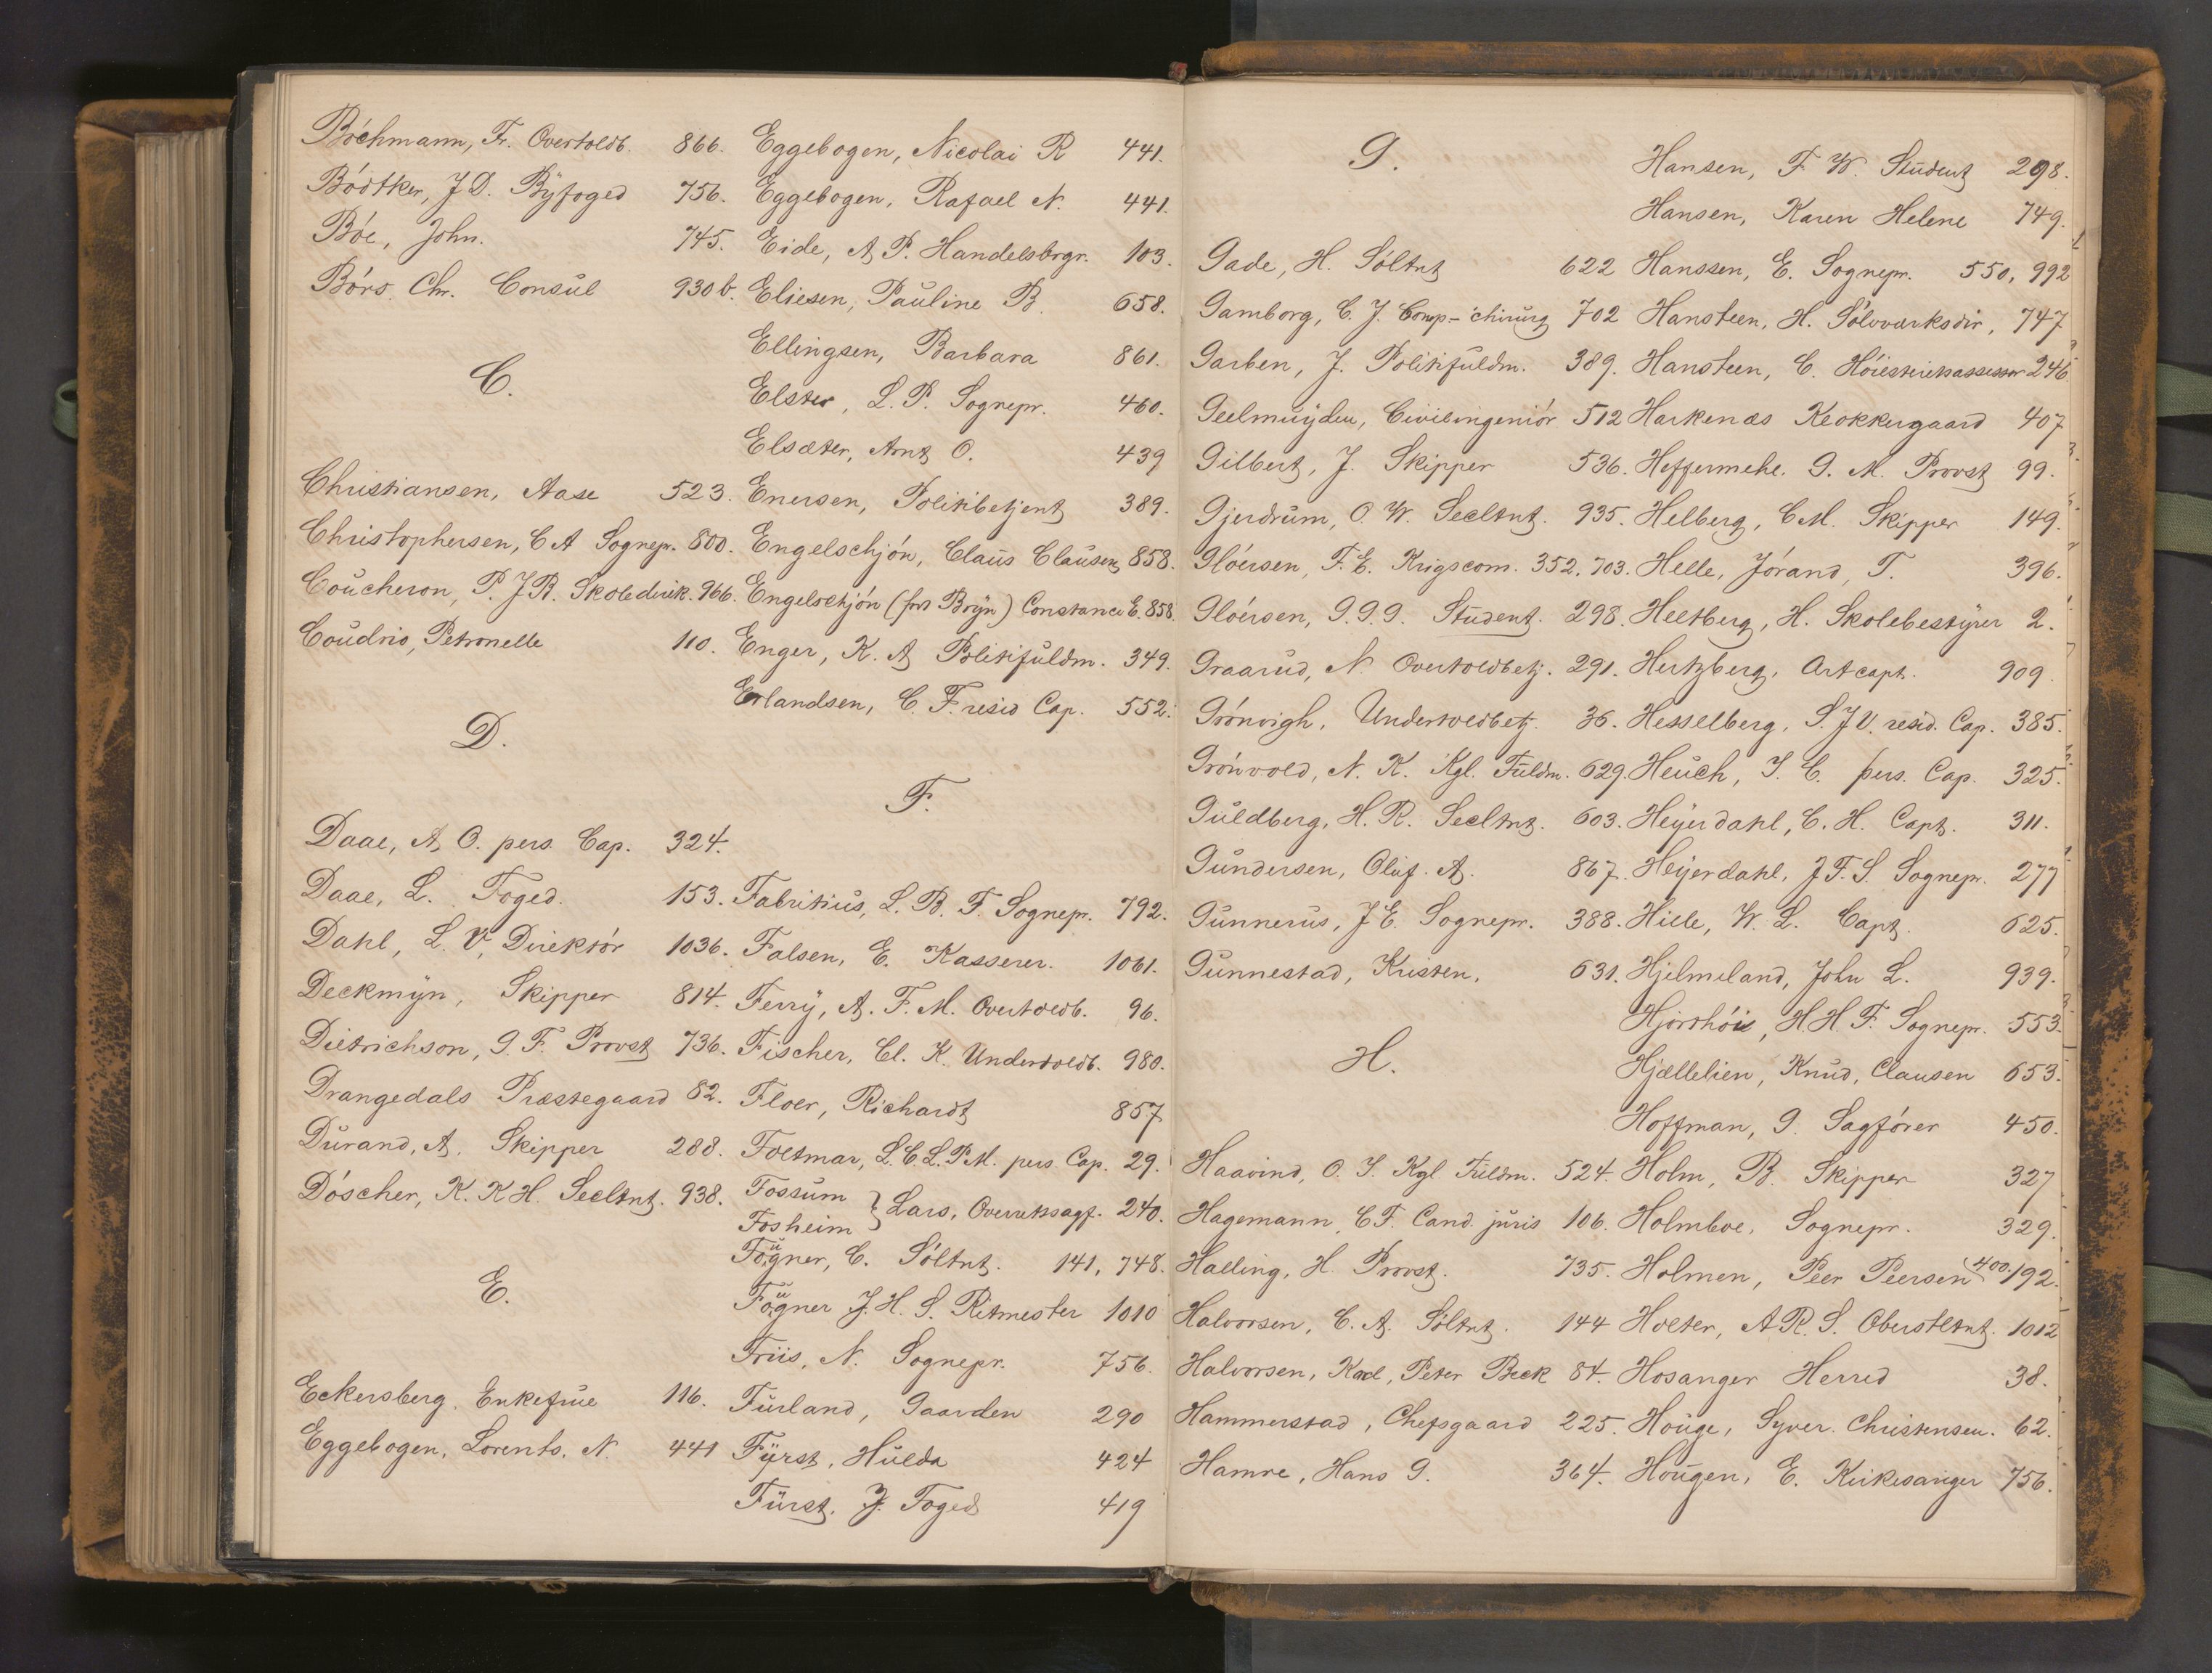 Böchmann, Fr. Overtoldb. 866.
Bödtker, J D. Byfoged 756.
Böe, John. 745.
Börs Chr. Consul 930 b.
C.
Christiansen, Aase 523.
Christophersen, C A Sognepr. 800.
Coucheron, P. J B. Skoledirek. 966.
Coudrio, Petronelle 110.
D.
Daae, A O. pers. Cap. 324.
Daae, L. Foged. 153.
Dahl, L. V, Direktör 1036.
Deckmyn, Skipper 814.
Dietrichson, G. F. Provst 736.
Drangedals Præstegaard 82.
Durand, A. Skipper 288.
Döscher, K. K H. Secltnt. 938.
E.
Eckersberg, Enkefrue 116.
Eggebogen, Lorents, N. 441
Eggebogen, Nicolai R 441.
Eggebogen, Rafael N. 441.
Eide, A P. Handelsbrgr. 103.
Eliesen, Pauline B. 658.
Ellingsen, Barbara 861.
Elster, L. P. Sognepr. 460.
Elsæter, Arnt O. 439
Enersen, Politibetjent 389.
Engelschjön, Claus Clausen 858.
Engelschjön (fød Bryn) Constance E. 858.
Enger, K. A Politifuldm. 349.
Erlandsen, C. F. resid Cap. 552.
F.
Fabritius, L. B. F. Sognepr. 792.
Falsen, E. Kasserer. 1061.
Ferry, A. F. M. Overtoldb. 96.
Fischer, Cl. K. Undertoldb. 980.
Floer, Richardt 857
Foltmar, L. C. L. P M. pers. Cap. 29.
Fossum
Fosheim } Lars, Overretssagf. 240.
Fougner, C. Söltnt. 141, 748.
Fougner J. H. S. Ritmester 1010
Friis, N. Sognepr. 756.
Furland, Gaarden 290
Fyrst, Hulda 424
Fürst. J. Foged 419
G.
Gade, H. Söltnt 622
Gamborg, C. J. Comp-chirurg 702
Garben, J. Politifuldm. 389.
Geelmuyden, Civilingeniör 512
Gilbert, J. Skipper 536.
Gjerdrum, O. W. Secltnt. 935.
Glöersen, F. E. Krigscom. 352. 703.
Glöersen, G. G. G. Student. 298.
Graarud, N. Overtoldbetj. 291.
Grönvigh, Undertoldbetj. 36.
Grönvold, N. K. Kgl. Fuldm. 629.
Guldberg, H. R. Secltnt. 603.
Gundersen, Oluf. A. 867.
Gunnerus, J E. Sognepr. 388.
Gunnestad, Kristen, 631.
H.
Haavind, O. I. Kgl Fuldm. 524.
Hagemann, C F. Cand. juris 106.
Halling, H. Provst. 735.
Halvorsen, C. A. Söltnt. 144
Halvorsen, Karl, Peter Beck 84.
Hammerstad, Chefsgaard 225.
Hamre, Hans G. 364.
Hansen, F W. Student 298.
Hansen, Karen Helene 749.
Hanssen, E. Sognepr. 550, 992
Hansteen, H. Sölvværksdir, 747
Hansteen, C. Höiesteretsassessor 246
Harkenæs Klokkergaard 407
Heffermehl. G. M. Provst 99.
Helberg, C M. Skipper 149.
Helle, Jörand, T. 396.
Heltberg, H. Skolebestyrer 2.
Hertzberg, Artcapt. 909
Hesselberg, S. J V. resid. Cap. 385.
Heuch, I. C. pers. Cap. 325.
Heyerdahl, C. H. Capt. 311.
Heyerdahl, J F. S. Sognepr. 277
Hille, W. L. Capt. 625.
Hjelmeland, John L. 939.
Hjorthöi, H H. F. Sognepr. 553.
Hjællelien, Knud, Clausen 653.
Hoffman, G. Sagförer 450.
Holm, B. Skipper 327
Holmboe, Sognepr. 329.
Holmen, Peer Peersen 400. 192.
Holter, A R. S. Oberstltnt. 1012
Hosanger Herred 38.
Houge, Syver Christensen. 62.
Hougen, E. Kirkesanger 756.